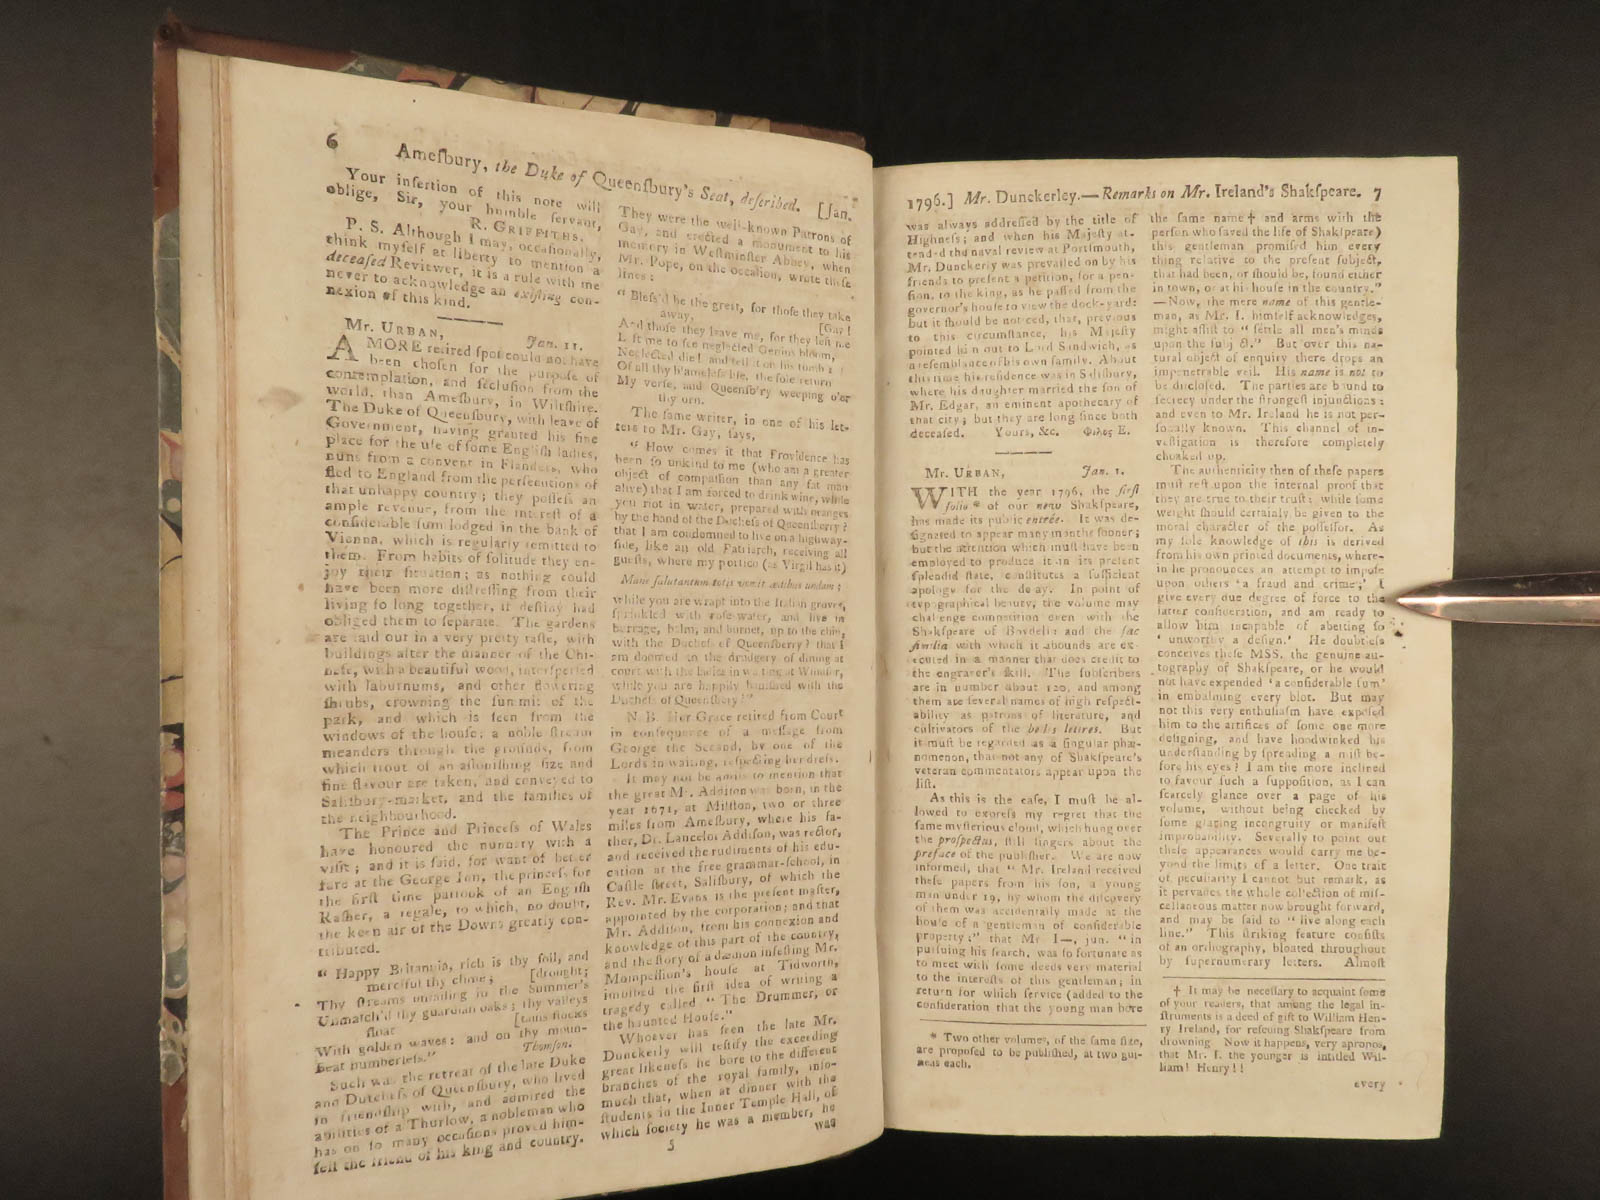 6 Ameſbury, the Duke of Queenſbury's Seat, deſcribed. [Jan.
Your inſertion of this note will
oblige, Sir, your humble ſervant,
R. GRIFFITHS.
P. S. Although I may, occaſionally,
think myſelf at liberty to mention a
deceaſed Reviewer, it is a rule with me
never to acknowledge an exiſting con-
nexion of this kind.
Mr. URBAN, Jan. 11.
A MORE retired ſpot could not have
been choſen for the purpoſe of
contemplation, and ſecluſion from the
world, than Ameſbury, in Wiltſhire.
The Duke of Queenſbury, with leave of
Government, having granted his fine
place for the uſe of ſome Engliſh ladies,
nuns from a convent in Flanders, who
fled to England from the perſecutions of
that unhappy country; they poſſeſs an
ample revenue, from the intereſt of a
conſiderable ſum lodged in the bank of
Vienna, which is regularly remitted to
them. From habits of ſolitude they en-
joy their ſituation; as nothing could
have been more diſtreſſing from their
living ſo long together, if deſtiny had
obliged them to ſeparate. The gardens
are laid out in a very pretty taſte, with
buildings after the manner of the Chi-
neſe, with a beautiful wood, interſperſed
with laburnums, and other flowering
ſhrubs, crowning the ſummit of the
park, and which is ſeen from the
windows of the houſe; a noble ſtream
meanders through the grounds, from
which trout of an aſtoniſhing ſize and
fine flavour are taken, and conveyed to
Saliſbury-market, and the families of
the neighbourhood.
The Prince and Princeſs of Wales
have honoured the nunnery with a
viſit; and it is ſaid, for want of better
fare at the George Inn, the princeſs for
the firſt time partook of an Engliſh
Raſher, a regale, to which, no doubt,
the keen air of the Downs greatly con-
tributed.
" Happy Britannia, rich is thy ſoil, and
merciful thy clime; [drought;
Thy ſtreams unfailing in the Summer's
Unmatch'd thy guardian oaks; thy valleys
float [tains flocks
With golden waves: and on thy moun-
beat numberleſs." Thomſon.
Such was the retreat of the late Duke
and Dutcheſs of Queenſbury, who lived
in friendſhip with, and admired the
abilities of a Thurlow, a nobleman who
has on ſo many occaſions proved him-
ſelf the friend of his king and country.
They were the well-known Patrons of
Gay, and erected a monument to his
memory in Weſtminſter Abbey, when
Mr. Pope, on the occaſion, wrote theſe
lines:
" Bleſs'd be the great, for thoſe they take
away, [Gay!
And thoſe they leave me, for they left me
Left me to ſee neglected Genius bloom,
Neglected die! and tell it on his tomb:
Of all thy blameleſs life, the ſole return
My verſe, and Queenſb'ry weeping o'er
thy urn.
The ſame writer, in one of his let-
ters to Mr. Gay, ſays,
" How comes it that Providence has
been ſo unkind to me (who am a greater
object of compaſſion than any fat man
alive) that I am forced to drink wine, while
you riot in water, prepared with oranges
by the hand of the Ducheſs of Queenſberry?
that I am condemned to live on a highway-
ſide, like an old Patriarch, receiving all
gueſts, where my portico (as Virgil has it)
Mane ſalutantum totis vomit ædibus undam;
while you are wrapt into the Italian groves,
ſprinkled with roſe-water, and live in
borrage, balm, and burnet, up to the chin,
with the Ducheſs of Queenſberry? that I
am doomed to the drudgery of dining at
court with the ladies in waiting at Windſor,
while you are happily baniſhed with the
Ducheſs of Queenſbery?"
N. B. Her Grace retired from Court
in conſequence of a meſſage from
George the Second, by one of the
Lords in waiting, reſpecting her dreſs.
It may not be amiſs to mention that
the great Mr. Addiſon was born, in the
year 1671, at Milſton, two or three
miles from Ameſbury, where his fa-
ther, Dr. Lancelot Addiſon, was rector,
and received the rudiments of his edu-
cation at the free grammar-ſchool, in
Caſtle ſtreet, Saliſbury, of which the
Rev. Mr. Evans is the preſent maſter,
appointed by the corporation; and that
Mr. Addiſon, from his connexion and
knowledge of this part of the country,
and the ſtory of a dæmon infeſting Mr.
Mompeſſion's houſe at Tidworth,
imbibed the firſt idea of writing a
tragedy called " The Drummer, or
the haunted Houſe."
Whoever has ſeen the late Mr.
Dunckerly will teſtify the exceeding
great likeneſs he bore to the different
branches of the royal family, inſo-
much that, when at dinner with the
ſtudents in the Inner Temple Hall, of
which ſociety he was a member, he
5 was
1796.] Mr. Dunckerley.—Remarks on Mr. Ireland's Shakſpeare. 7
was always addreſſed by the title of
Highneſs; and when his Majeſty at-
tended the naval review at Portſmouth,
Mr. Dunckerly was prevailed on by his
friends to preſent a petition, for a pen-
ſion, to the king, as he paſſed from the
governor's houſe to view the dock-yard:
but it ſhould be noticed, that, previous
to this circumſtance, his Majeſty
pointed him out to Lord Sandwich, as
a reſemblance of his own family. About
this time his reſidence was in Saliſbury,
where his daughter married the ſon of
Mr. Edgar, an eminent apothecary of
that city; but they are long ſince both
deceaſed. Yours, &c. Φιλος E.
Mr. URBAN, Jan. 1.
WITH the year 1796, the firſt
folio * of our new Shakſpeare,
has made its public entrée. It was de-
ſignated to appear many months ſooner;
but the attention which muſt have been
employed to produce it in its preſent
ſplendid ſtate, conſtitutes a ſufficient
apology for the delay. In point of
typographical beauty, the volume may
challenge competition even with the
Shakſpeare of Boydell: and the fac
ſimilia with which it abounds are ex-
ecuted in a manner that does credit to
the engraver's ſkill. The ſubſcribers
are in number about 120, and among
them are ſeveral names of high reſpect-
ability as patrons of literature, and
cultivators of the belles lettres. But
it muſt be regarded as a ſingular phæ-
nomenon, that not any of Shakſpeare's
veteran commentators appear upon the
liſt.
As this is the caſe, I muſt be al-
lowed to expreſs my regret that the
ſame myſterious cloud, which hung over
the proſpectus, ſtill lingers about the
preface of the publiſher. We are now
informed, that " Mr. Ireland received
theſe papers from his ſon, a young
man under 19, by whom the diſcovery
of them was accidentally made at the
houſe of a gentleman of conſiderable
property:" that Mr I—, jun. " in
purſuing his ſearch, was ſo fortunate as
to meet with ſome deeds very material
to the intereſts of this gentleman; in
return for which ſervice (added to the
conſideration that the young man bore
* Two other volumes, of the ſame ſize,
are propoſed to be publiſhed, at two gui-
neas each.
the ſame name † and arms with the
perſon who ſaved the life of Shakſpeare)
this gentleman promiſed him every
thing relative to the preſent ſubject,
that had been, or ſhould be, found either
in town, or at his houſe in the country."
—Now, the mere name of this gentle-
man, as Mr. I. himſelf acknowledges,
might aſſiſt to " ſettle all men's minds
upon the ſubject." But over this na-
tural object of enquiry there drops an
impenetrable veil. His name is not to
be diſcloſed. The parties are bound to
ſecrecy under the ſtrongeſt injunctions:
and even to Mr. Ireland he is not per-
ſonally known. This channel of in-
veſtigation is therefore completely
choaked up.
The authenticity then of theſe papers
muſt reſt upon the internal proof that
they are true to their truſt: while ſome
weight ſhould certainly be given to the
moral character of the poſſeſſor. As
my ſole knowledge of this is derived
from his own printed documents, where-
in he pronounces an attempt to impoſe
upon others 'a fraud and crime;' I
give every due degree of force to the
latter conſideration, and am ready to
allow him incapable of abetting ſo
' unworthy a deſign.' He doubtleſs
conceives theſe MSS. the genuine au-
tography of Shakſpeare, or he would
not have expended ' a conſiderable ſum'
in embalming every blot. But may
not this very enthuſiaſm have expoſed
him to the artifices of ſome one more
deſigning, and have hoodwinked his
underſtanding by ſpreading a miſt be-
fore his eyes? I am the more inclined
to favour ſuch a ſuppoſition, as I can
ſcarcely glance over a page of his
volume, without being checked by
ſome glaring incongruity or manifeſt
improbability. Severally to point out
theſe appearances would carry me be-
yond the limits of a letter. One trait
of peculiarity I cannot but remark, as
it pervades the whole collection of miſ-
cellaneous matter now brought forward,
and may be ſaid to " live along each
line." This ſtriking feature conſiſts
of an orthography, bloated throughout
by ſupernumerary letters. Almoſt
† It may be neceſſary to acquaint ſome
of your readers, that among the legal in-
ſtruments is a deed of gift to William Hen-
ry Ireland, for reſcuing Shakſpeare from
drowning Now it happens, very apropos,
that Mr. I. the younger is intitled Wil-
liam! Henry!!
every